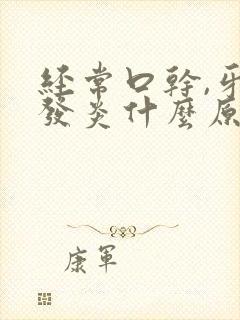 經常口幹,牙
發炎什麼原
康軍